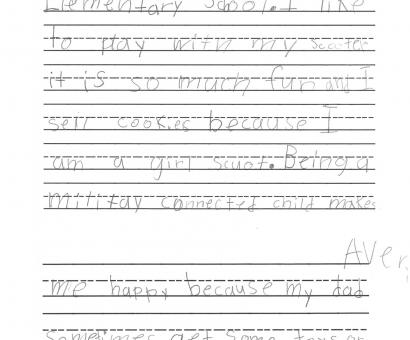 Elementary School. I like
to play with my scooter
it is so much fun and I
sell cookies because I
am a girl scuot. Being a
militay connected child makes
Aver
me happy because my dad
sometimes get some toys or